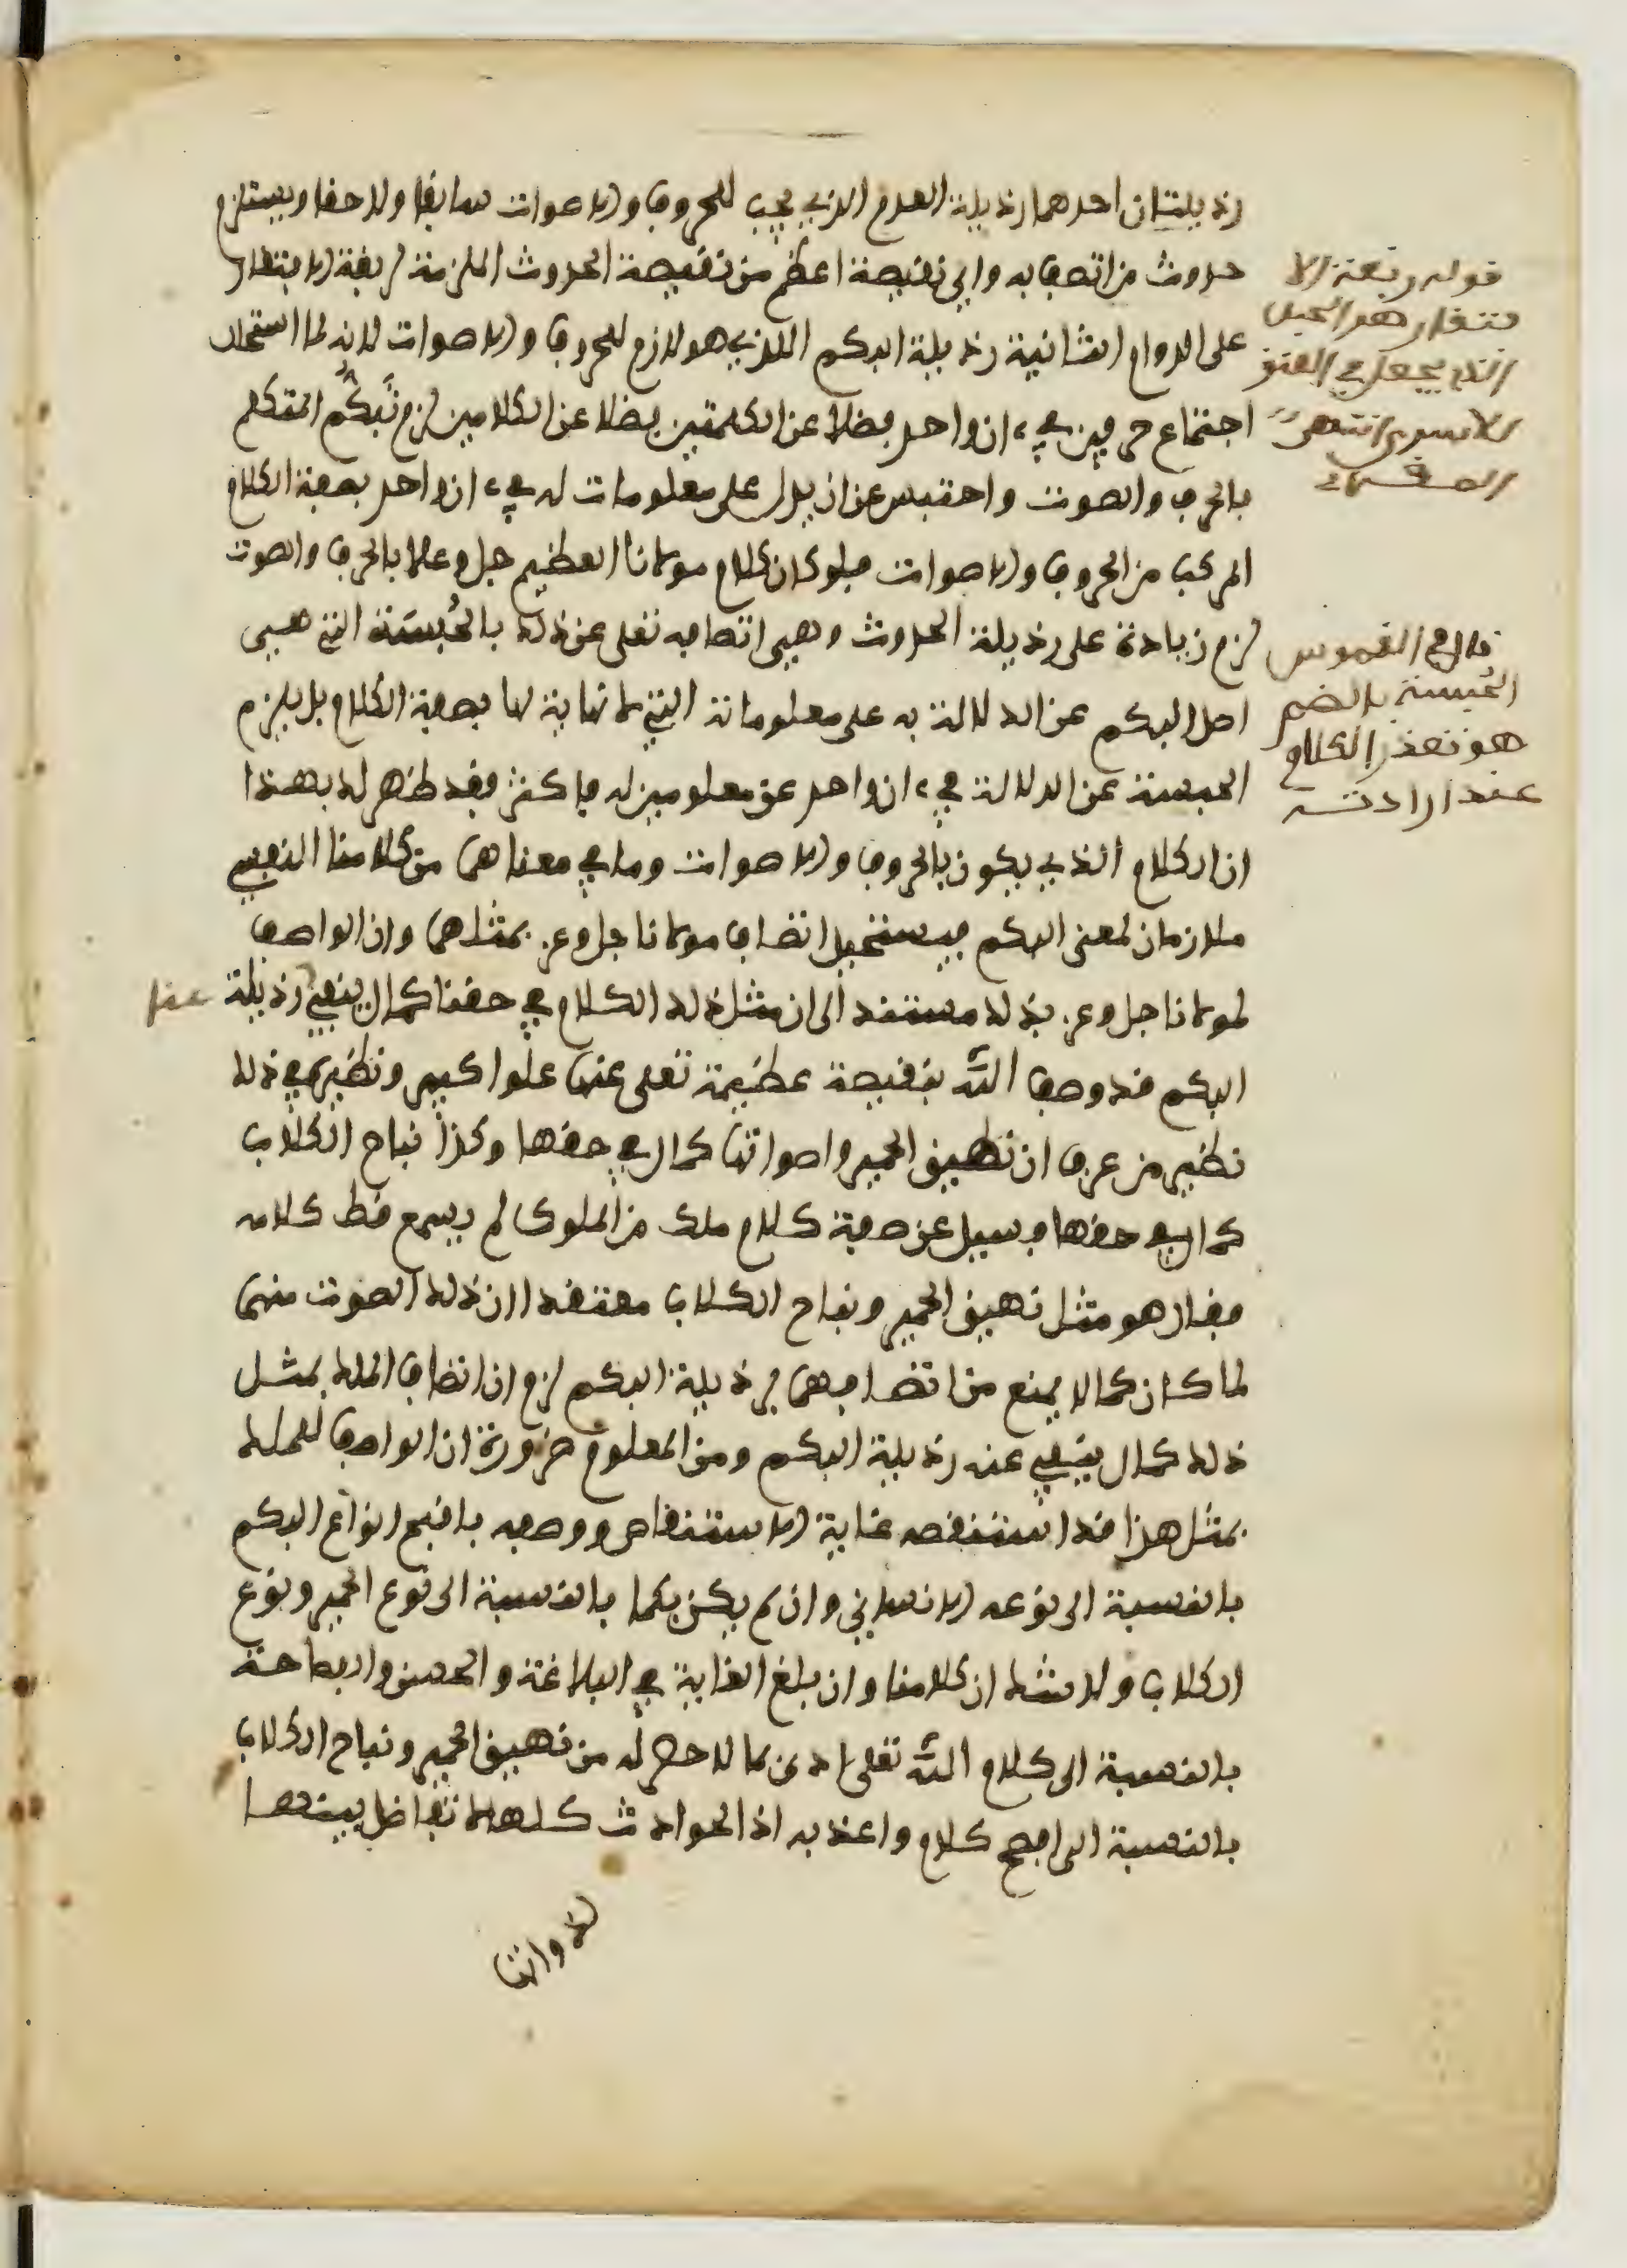 رذيلتان احدهما رذيلة العدم الذي يجب للحروف والاصوات سابقا ولاحقا ويستلزم
حدوث من اتصف به واي نقيصة اعظم من نقيصة الحدوث الملزمة لربقة الافتقار
على الدوام الثانية رذيلة البكم اللذي هو لازم للحروف والاصوات لانه لما استحال
اجتماع حرفين في ءان واحد فضلا عن الكلمتين فضلا عن الكلامين لزم تبكم المتكلم
بالحرف والصوت واحتبس عن ان يدل على معلومات له في ءان واحد بصفة الكلام
المركب من الحروف والاصوات فلو كان كلام مولانا العظيم جل وعلا بالحرف والصوت
لزم زيادة على رذيلة الحدوث وهي اتصافه تعلى عن ذلك بالحُبسَة التي هي
اصل البكم عن الدلالة به على معلوماته التي لا نهاية لها بصفة الكلام بل يلزم
الحبسة عن الدلالة في ءان واحد عن معلومين له فاكثر فقد ظهر لك بهذا
ان الكلام الذي يكون بالحروف والاصوات وما في معناهما من كلامنا النفسي
ملازمان لمعنى البكم فيستحيل اتصاف مولانا جل وعز بمثلهما وان الواصف
لمولانا جل وعز بذلك مستند الى ان مثل ذلك الكلام في حقنا كمال ينفي رذيلة عنا
البكم فقد وصف الله بنقيصة عظيمة تعلى عنها علوا كبير ونظيره في ذلك
نظير من عرف ان نهيق الحمير واصواتها كمال في حقها وكذا نباح الكلاب
كمال في حقها فسيل عن صفة كلام ملك من الملوك لم يسمع قط كلامه
فقال هو مثل نهيق الحمير ونباح الكلاب معتقدا ان ذلك الصوت منهما
لما كان كمالا يمنع من اتصافهما برذيلة البكم لزم ان اتصاف الملك بمثل
ذلك كمال ينفي عنه رذيلة البكم ومن المعلوم ضرورة ان الواصف للملك
بمثل هذا قد استنقصه غاية الاستنقاص ووصفه باقبح انواع البكم
بالنسبة الى نوعه الانساني وان لم يكن بكما بالنسبة الى نوع الحمير ونوع
الكلاب ولا شك ان كلامنا وان بلغ الغاية في البلاغة والحسن والفصاحة
بالنسبة الى كلام الله تعلى ادنى بما لا حصر له من نهيق الحمير ونباح الكلاب
بالنسبة الى افصح كلام واعذبه اذ الحوادث كلها لا تفاضل بينها
لذواتها
قوله ربقة الا
فتقار هو الحبل
الذي يجعل في العنق
للاسرى انتهى
قال في القموس
الحُبسة بالضم
هو تعذر الكلام
عند ارادته